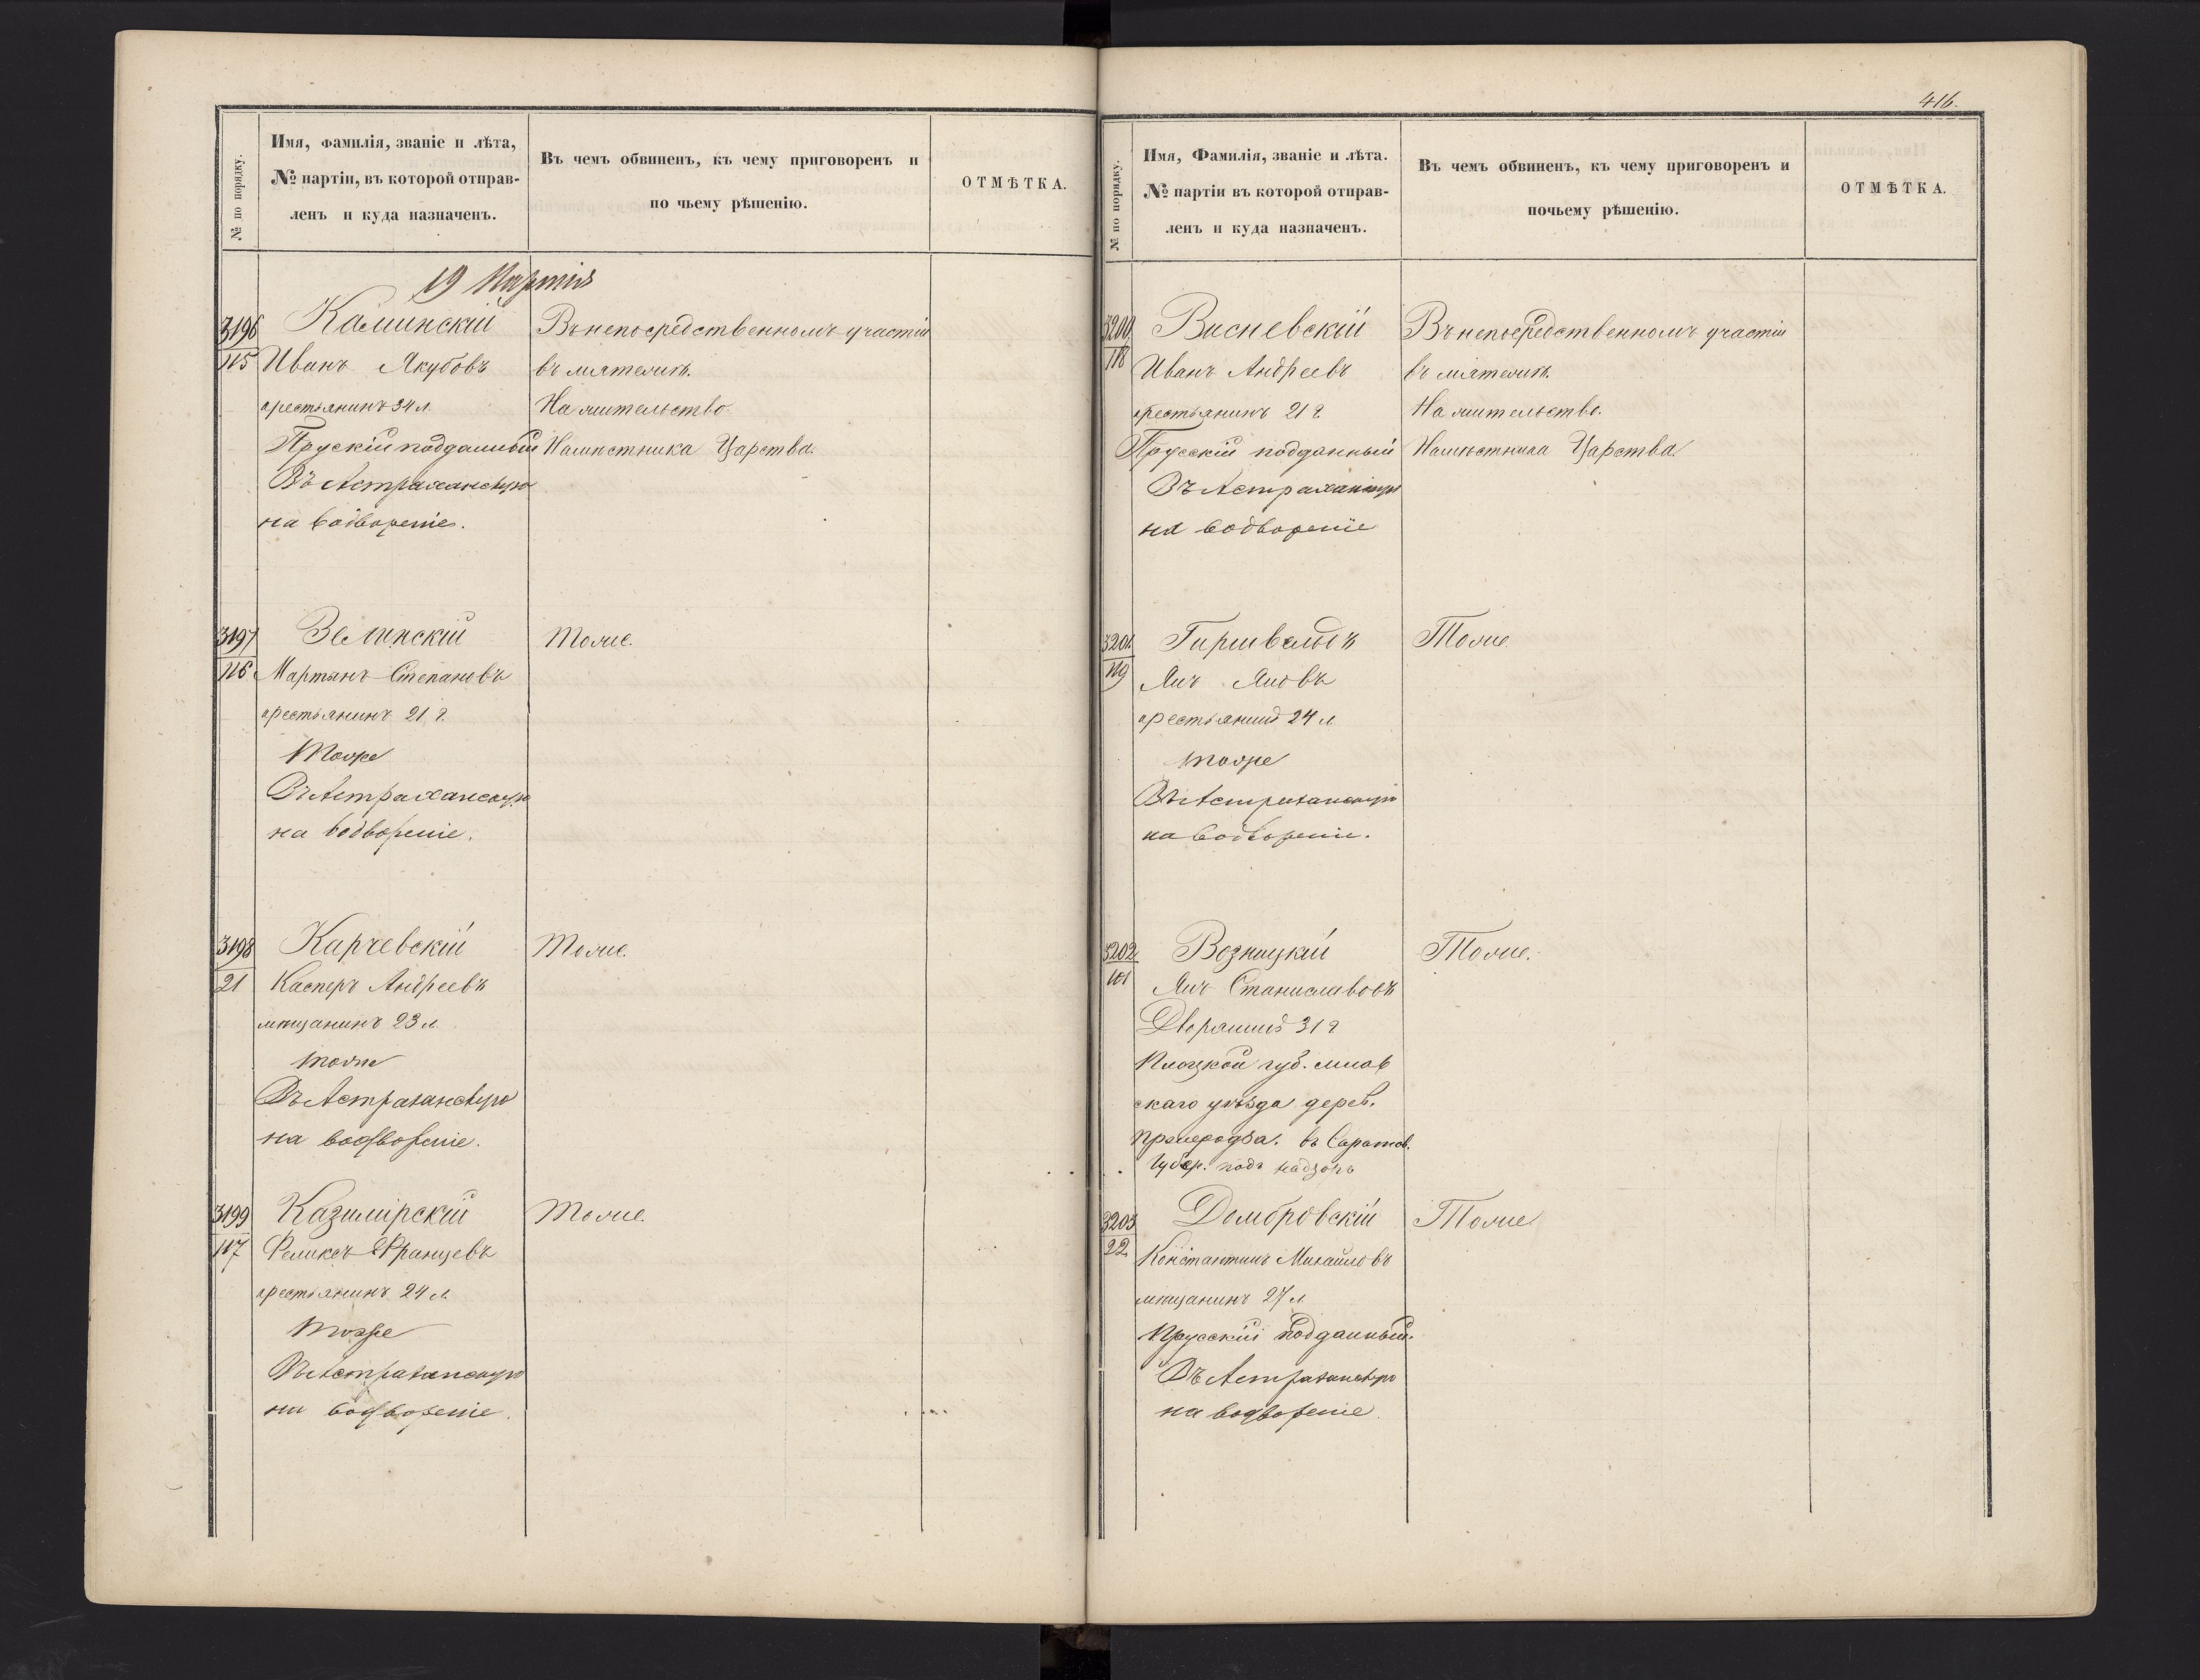 № по порядку.
Имя, фамилія, званіе и лѣта,
№ партіи, въ которой отправ-
ленъ и куда назначенъ.
Въ чемъ обвиненъ, къ чему приговоренъ и
по чьему рѣшенію.
ОТМѢТКА.
19 Партія
3196
115
Каминскій
Иванъ Якубовъ
крестьянинъ 34 л.
Прускій подданный
Въ Астраханскую
на водвореніе.
Въ непосредственномъ участіи
въ мятежѣ.
На жительство.
Намѣстника Царства.
3197
116
Зелинскій
Мартынъ Степановъ
крестьянинъ 21 г.
тоже
Въ Астраханскую
на водвореніе.
Тоже.
3198
21
Карчевскій
Касперъ Андреевъ
мѣщанинъ 23 л.
тоже
Въ Астраханскую
на водвореніе.
Тоже.
3199
117
Казимірскій
Феликсъ Францевъ
крестьянинъ 24 л.
тоже
Въ Астраханскую
на водвореніе.
Тоже.
416.
№ по порядку.
Имя, Фамилія, званіе и лѣта.
№ партіи въ которой отправ-
ленъ и куда назначенъ.
Въ чемъ обвиненъ, къ чему приговоренъ и
почьему рѣшенію.
ОТМѢТКА.
3200
118
Висневскій
Иванъ Андреевъ
крестьянинъ 21 г.
Прусскій подданный
Въ Астраханскую
на водвореніе
Въ непосредственномъ участіи
въ мятежѣ.
На жительство.
Намѣстника Царства.
3201.
119
Гиршвельдъ
Янъ Яновъ
крестьянинъ 24 л.
тоже
Въ Астраханскую
на водвореніе.
Тоже.
3202
101
Возницкій
Янъ Станиславовъ
Дворянинъ 31 г
Плоцкой губ. млав
скаго уѣзда дерев.
въ Саратов.
Губер. подъ надзоръ
Тоже.
3203
22
Домбровскій
Константинъ Михайловъ
мѣщанинъ 27 л
Прусскій подданный.
Въ Астраханскую
на водвореніе.
Тоже